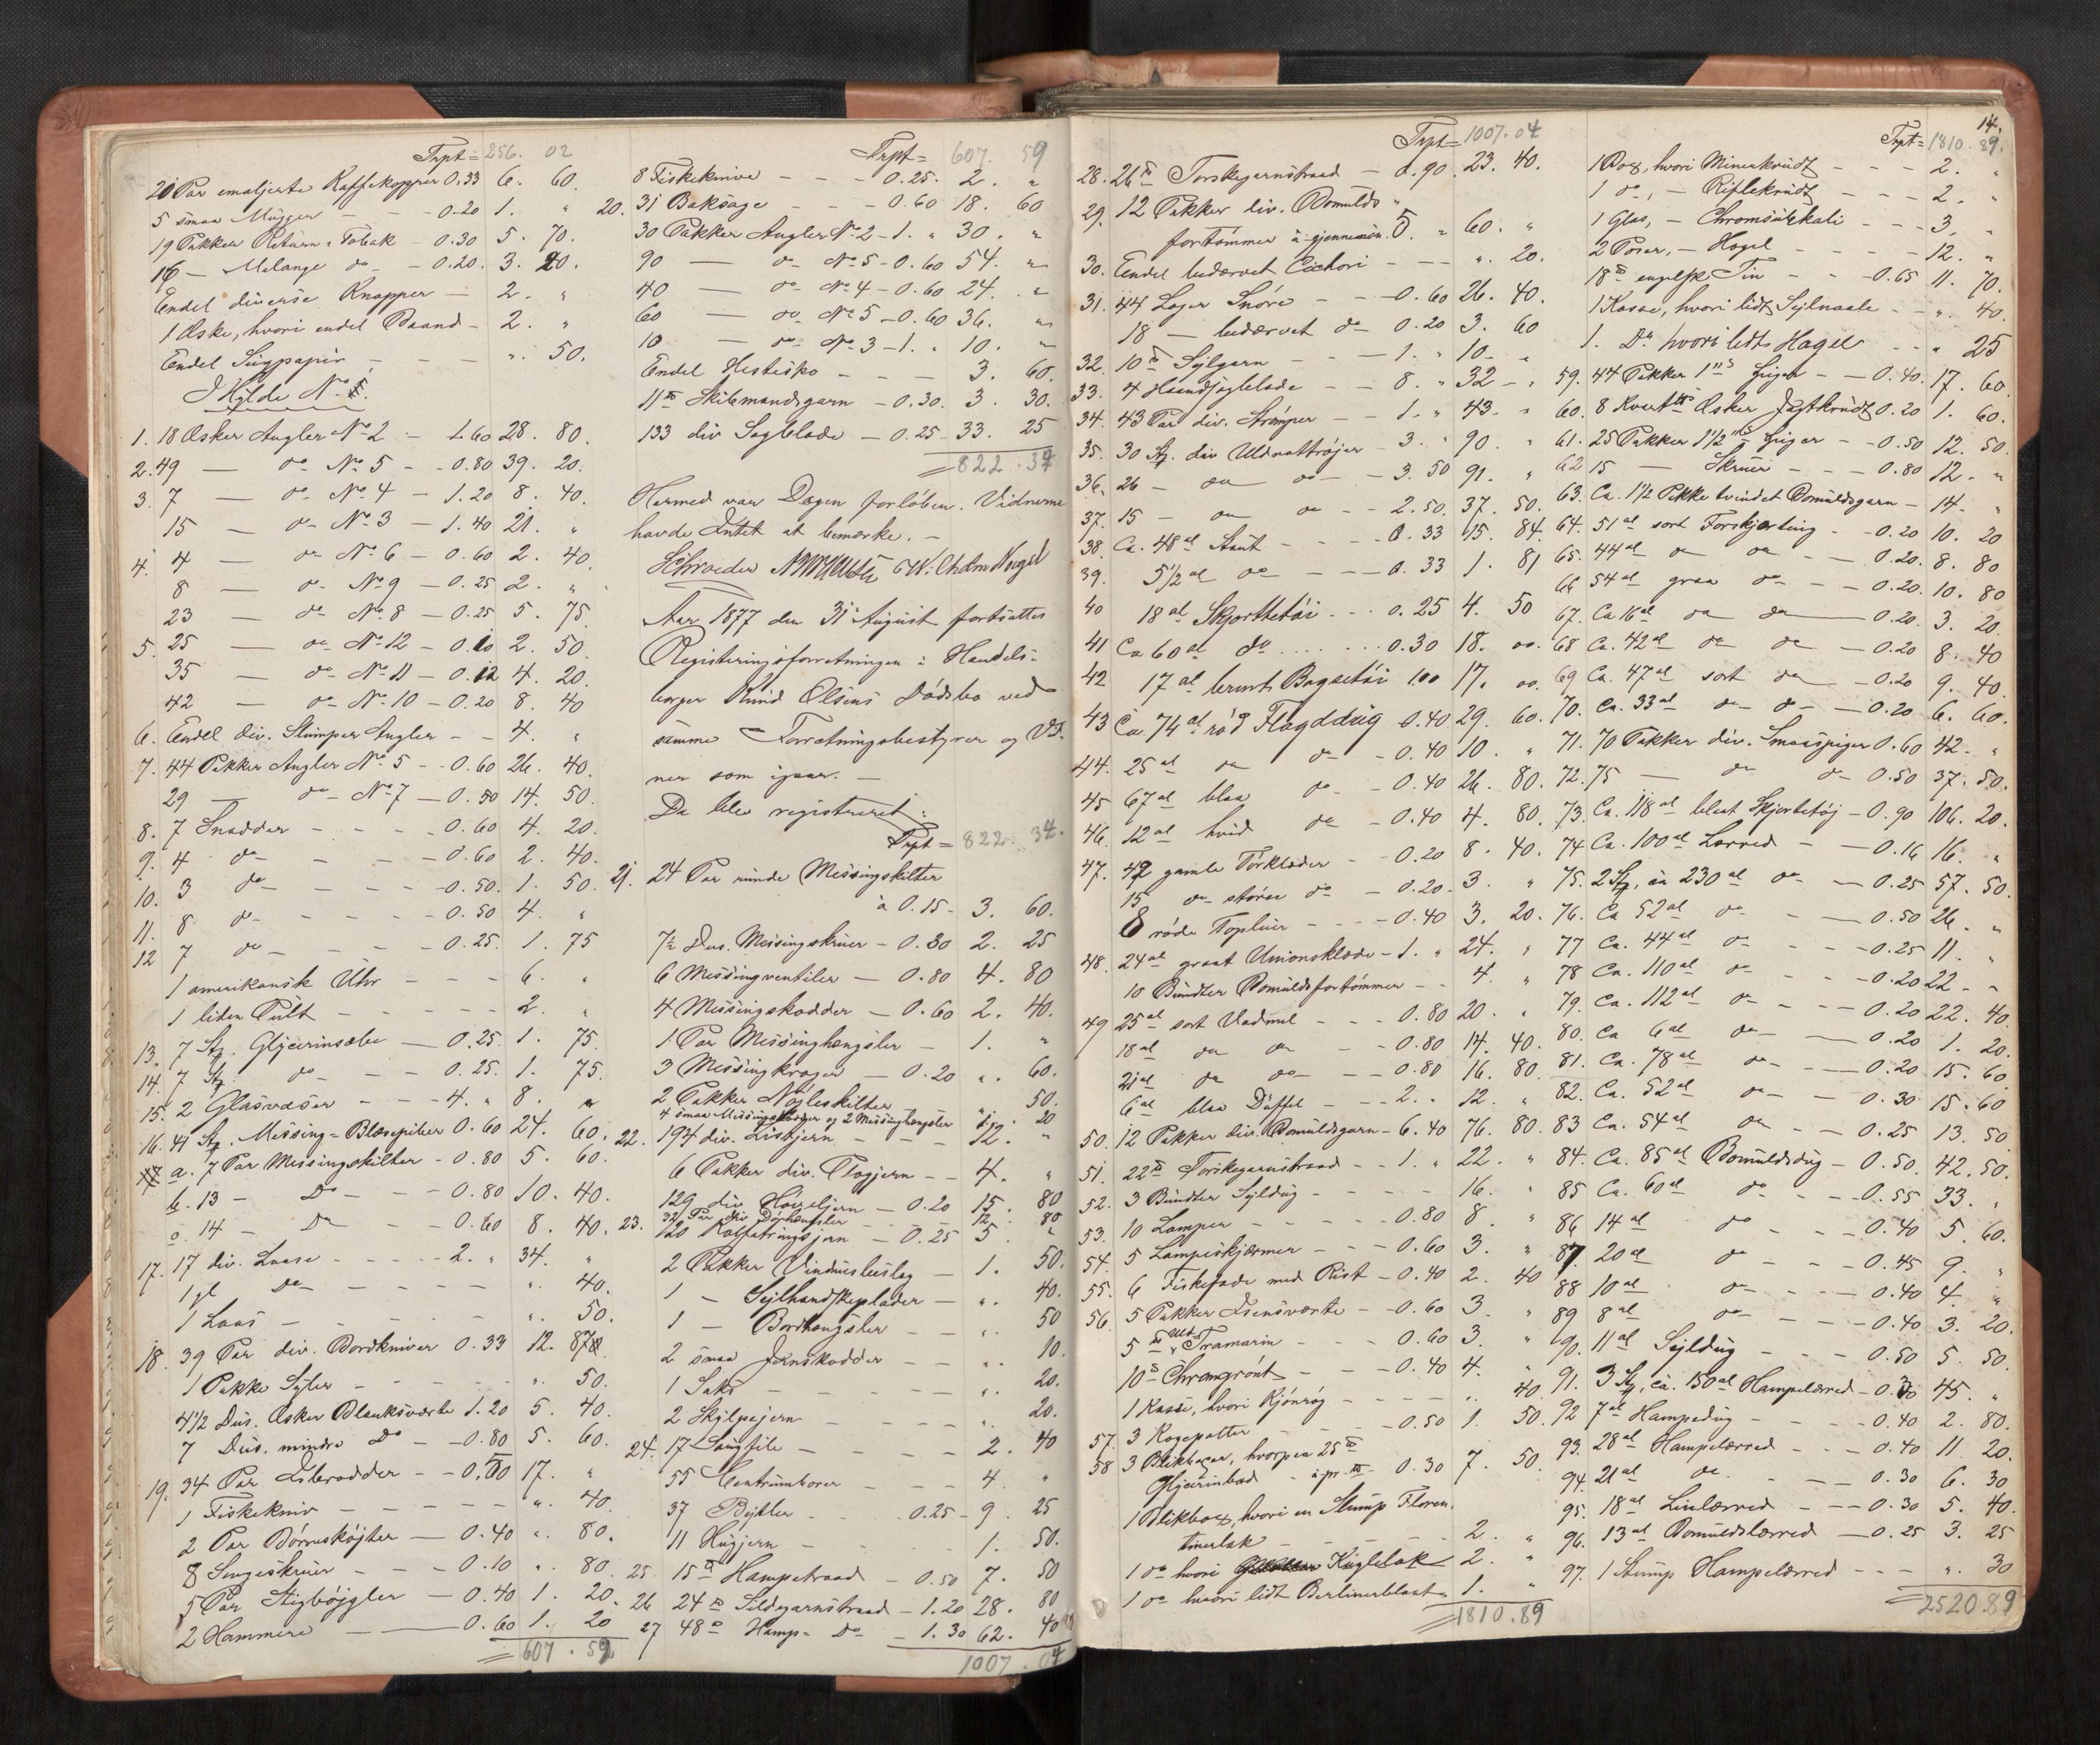 Trpt = 256. 02
20 Par emaljerte Kaffekopper 0.33 6. 60.
5 smaa Mugger - - 0.20 1. "
19 Pakker Return-Tobak - 0.30 5. 70.
16 - Melange do - 0.20. 3. 20.
Endel diverse Knapper - 2. "
1 Æske, hvori endel Baand - 2. "
Endel Sugpapir - - - ". 50.
I Hylde No 5.
1. 18 Æsker Angler No 2 - 1.60 28. 80.
2. 49 — do No 5 - 0.80 39. 20.
3. 7 — do No 4 - 1.20 8. 40.
15 — do No 3 - 1.40 21. "
4. 4 — do No 6 - 0.60 2. 40.
8 — do No 9 - 0.25 2. "
23 — do No 8 - 0.25 5. 75.
5. 25 — do No 12 - 0.10 2. 50.
35 — do No 11 - 0.12 4. 20.
42 — do No 10 - 0.20 8. 40
6. Endel div. Stumper Angler - - 4. "
7. 44 Pakker Angler No 5 - - 0.60 26. 40.
29 — do No 7 - 0.50 14. 50.
8. 7 Snadder - - - - 0.60 4. 20.
9. 4 do - - - 0.60 2. 40.
10. 3 do - - - - 0.50. 1. 50.
11. 8 do - - - - 0.50 4. "
12 7 do - - - - 0.25. 1. 75
1 amerikansk Uhr - - - 6. "
1 liden Pult - - - - 2. "
13. 7 Stk. Glycerinsæbe - 0.25. 1. 75.
14. 7 Stk. do - - 0.25. 1. 75.
15. 2 Glasvaser - - - 4. " 8. "
16. 41 Stk. Messing-Blæsepiber 0.60 24. 60.
a. 7 Par Messingskilter - 0.80 5. 60.
b. 13 - Do - - 0.80 10. 40.
c. 14 - Do - - 0.60 8. 40.
17. 17 div. Laase - - - - 2. " 34. "
1 gl Do - - - - ". 40.
1 Laas - - - - ". 50.
18. 39 Par div. Bordkniver 0.33 12. 87
1 Pakke Syler - - - - ". 50.
4 1/2 Dus. Æsker Blanksværte 1.20 5. 40.
7 Dus. mindre Do - - 0.80 5. 60.
19. 34 Par Isbrodder - - 0.50 17. "
1 Fiskekniv - - - - ". 40.
2 Par Børneskøjter - 0.40 ". 80.
8 Sengeskruer - - - 0.10 ". 80.
3 Par Stigbøjgler - 0.40 1. 20.
2 Hammere - - 0.60 1. 20
607. 59
Trpt = 607. 59
8 Fiskeknive - - - 0.25. 2. "
20. 31 Baksage - - - 0.60 18. 60
30 Pakker Angler No 2 - 1. " 30. "
90 — do No 5 - 0.60 54. "
40 — do No 4 - 0.60 24. "
60 — do No 5 - 0.60 36. "
10 — do No 3 - 1. " 10. "
Endel Hestesko - - - 3. 60.
11 ℔ Skibmandsgarn - 0.30. 3. 30.
133 div Sagblade - 0.25 - 33. 25
822. 34
Hermed var Dagen forløben. Vidnerne
havde Intet at bemærke. -
Schrøder
Aar 1877 den 31 August fortsattes
Registeringsforretningen i Handels-
borger Knud Olsens Dødsbo ved
samme Forretningsbestyrer og Vid-
ner som igaar. —
Da blev registreret:
Trpt = 822. 34.
21. 24 Par runde Messingskilter
à 0.15 - 3. 60.
7 1/2 Dus. Messingskruer - 0.30 2. 25
6 Messingventiler - 0.80 4. 80
4 Messingskodder - 0.60 2. 40.
1 Par Messinghengsler - 1. "
3 Messingkroger - 0.20 ". 60.
2 Pakker Nøgleskilter " 50.
4 smaa Messingkroger og 2 Messinghengsler ". 20
22. 194 div. Listjern - - - - 12. "
6 Pakker div. Plogjern - - 4. "
129 div Høveljern - 0.20 15. 80
32 Par div Dørhengsler - - 12. 80
23. 20 Kalfatringsjern - 0.25 5. "
2 Pakker Vinduesbeslag - 1. 50.
1 - Sejlhandskeplader - ". 40.
1 - Bordhengsler - - ". 50
2 smaa Jernskodder - - ". 10.
1 Saks - - - - - ". 20.
2 Skylpejern - - - - ". 20.
24. 17 Saugfile - - - - 2. 40
55 Centrumborer - - - 4. "
37 Bejtler - - 0.25 - 9. 25
11 Hugjern - - - - 1. 50.
25. 15 ℔ Hampetraad - 0.50 7. 50
26 24 ℔ Sildegarnstraad - 1.20 28. 80
27 48 ℔ Hamp- Do - 1.30 62. 40
1007. 04
Trpt = 1007. 04
28. 26 ℔ Torskegarnstraad - 0.90 23. 40.
29. 12 Pakker div. Bomulds-
fortømmer à gjennemsn. 5. " 60. "
30. Endel bedærvet Cichori - - - ". 20.
31. 44 Lager Snøre - - 0.60 26. 40.
18 — bedærvet do - 0.20 3. 60
32. 10 ℔ Sylgarn - - 1. " 10. "
33. 4 Haandsagblade - - 8. " 32 - "
34. 43 Par div. Strømper - - 1. " 43. "
35. 30 Stk. div Uldnattrøjer - 3. " 90. "
36. 26 - do do - - 3. 50 91. "
37. 15 - do do - - 2.50. 37. 50.
38. Ca. 48 al Stout - - - 0.33 15. 84.
39. 5 1/2 al do - - - 0.33 1. 81
40 18 al Skjorttetøi - - - 0.25 4. 50
41 Ca 60 al do . . . . . . 0.30 18. oo.
42 17 al brunt Buxsetøi 1.00 17. oo.
43 Ca. 74 al rød Flagddug - 0.40 29. 60.
44. 25 al do do - 0.40 10. "
45 67 al blaa do - 0.40 26. 80.
46. 12 al hvid do - 0.40 4. 80.
47. 42 gamle Tørklæder - - 0.20 8. 40.
15 do større do - 0.20. 3. "
8 røde Topluer - - - 0.40 3. 20.
48. 24 al graat Unionsklæde - 1. " 24. "
10 Bundter Bomuldsfortømmer - - 4. "
49 25 al sort Vadmel - - - 0.80 20. "
18 al do do - - 0.80 14. 40.
21 al do do - - 0.80 16. 80
6 al blaa Düffel - - 2. " 12. "
50. 12 Pakker div. Bomuldsgarn - 6.40 76. 80.
51. 22 ℔ Torskegarnstraad - - 1. " 22. "
52. 3 Bundter Sejldug - - - - 16. "
53. 10 Lamper - - - - 0.80 8. "
54. 5 Lampeskjærmer - - 0.60 3. "
55. 6 Fiskefade med Rist - 0.40 2. 40
56. 5 Pakker Isensværte - 0.60 3. "
5 ℔ Ultramarin - - - 0.60 3. "
10 ℔ Chromgrønt - - - 0.40 4. "
1 Kasse, hvori Kjønrøg - - - ". 40.
57. 3 Kogepotter - - - 0.50 1. 50.
58 3 Blikboxer, hvorpaa 25 ℔
Glycerinbad - à pr. ℔ - 0.30 7. 50
1 Blikbox, hvori en Slump Floren-
tinerlak - - - - - 2. "
1 do hvori Kuglelak 2. "
1 do hvori lidt Berlinerblaat - 1. "
1810. 89
14.
Trpt = 1810. 89.
1 Box, hvori Minerkrudt - - - 2. "
1 do, - Riflekrudt - - - 2. "
1 Glas, - Chromsürkali - - - 3. "
2 Poser, - Hagel - - - - 12. "
18 ℔ engelsk Tin - - - 0.65 11. 70.
1 Kasse, hvori lidt Sejlnaale - - ". 40.
1. Do hvori lidt Hagel - - " 25
59. 44 Pakker 1" Spiger - - 0.40. 17. 60
60. 8 Kvart℔ Æsker Jagtkrudt 0.20 1. 60.
61. 25 Pakker 1 1/2" Spiger - - 0.50 12. 50.
62 15 — Skruer - - - 0.80 12. "
63. Ca. 1 1/2 Pakke tvindet Bomuldsgarn - 14. "
64. 51 al sort Forskjerting - - 0.20 10. 20
65. 44 al do do - - 0.20. 8. 80
66 54 al graa do - - 0.20. 10. 80
67. Ca 16 al do do - - 0.20. 3. 20.
68 Ca. 42 al do do - - 0.20 8. 40
69 Ca. 47 al sort do - 0.20 9. 40.
70. Ca. 33 al do do - - 0.20 6. 60.
71. 70 Pakker div. Smaaspiger 0.60 42. "
72. 75 — do do 0.50 37. 50.
73. Ca. 118 al blaat Skjortetøj - 0.90 106. 20.
74 Ca. 100 al Lærred - - 0.16 16. "
75. 2 Stk, ca 230 al do - 0.25 57. 50.
76. Ca 52 al do - - 0.50 26. "
77 Ca. 44 al do - - - 0.25 11. "
78 Ca. 110 al do - - - 0.20 22 - "
79. Ca. 112 al do - - - 0.20 22. 40.
80. Ca 6 al do - - 0.20 1. 20.
81. Ca. 78 al do - - - 0.20 15. 60
82. Ca. 52 al do - - 0.30 15. 60
83 Ca. 54 al do - - 0.25 13. 50
84. Ca. 85 al Bomuldsdug - 0.50. 42. 50.
85 Ca. 60 al do - - 0.55 33. "
86 14 al do - - 0.40 5. 60.
87. 20 al do - - - 0.45 9. "
88 10 al do - - - 0.40 4. "
89 8 al do - - - 0.40 3. 20.
90. 11 al Sejldug - - - 0.50 5. 50.
91. 3 Stk, ca. 150 al Hampelærred - 0.30 45. "
92 7 al Hampedug - - - 0.40 2. 80.
93. 28 al Hampelærred - - - 0.40 11 20.
94. 21 al do. - - 0.30 6. 30
95. 18 al Linlærred - - - 0.30 5. 40.
96. 13 al Bomuldslærred - 0.25 3. 25
97. 1 Stump Hampelærred - - - ". 30
2520.89